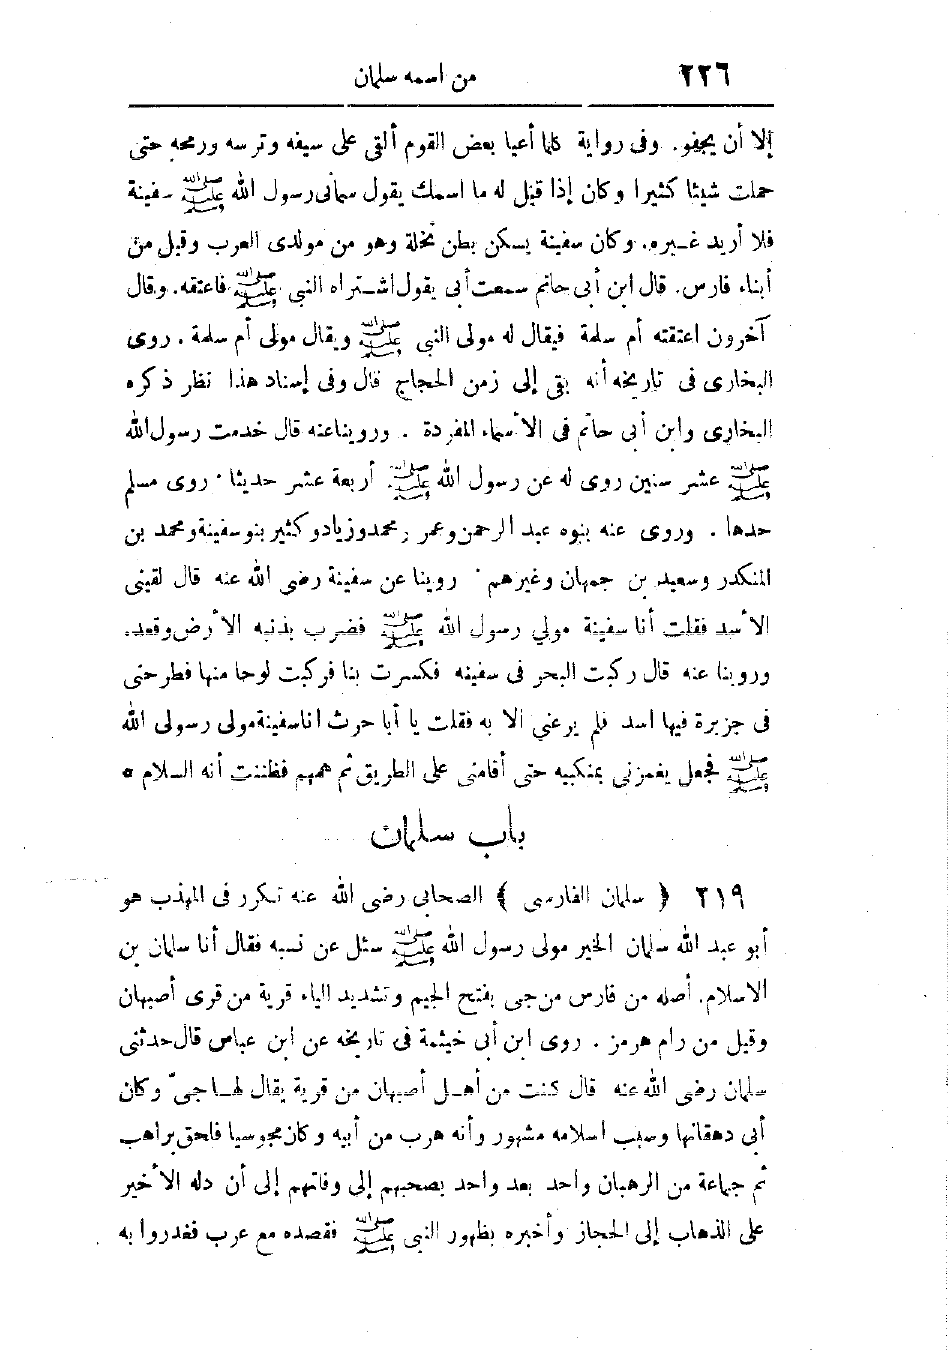 ٢٢٦ من اسمه سلمان
إلا أن يجفو. وفى رواية كلما أعيا بعض القوم ألقى على سيفه وترسه ورمحه حتى
حملت شيئا كثيرا وكان إذا قيل له ما اسمك يقول سمانى رسول الله ﷺ سفينة
فلا أريد غيره. وكان سفينة يسكن بطن نخلة وهو من مولدى العرب وقيل من
أبناء فارس. قال ابن أبى حاتم سمعت أبى يقول اشتراه النبى ﷺ فاعتقه. وقال
آخرون اعتقته أم سلمة فيقال له مولى النبى ﷺ ويقال مولى أم سلمة . روى
البخارى فى تاريخه أنه بقى إلى زمن الحجاج قال وفى إسناد هذا نظر ذكره
البخارى وابن أبى حاتم فى الأسماء المفردة . وروينا عنه قال خدمت رسول الله
ﷺ عشر سنين روى له عن رسول الله ﷺ. أربعة عشر حديثا . روى مسلم
حدها . وروى عنه بنوه عبد الرحمن وعمر ومحمد وزياد وكثير بنو سفينة ومحمد بن
المنكدر وسعيد بن جمهان وغيرهم . روينا عن سفينة رضى الله عنه قال لقينى
الأسد فقلت أنا سفينة مولي رسول الله ﷺ فضرب بذنبه الأرض وقعد.
وروينا عنه قال ركبت البحر فى سفينه فكسرت بنا فركبت لوحا منها فطرحنى
فى جزيرة فيها اسد فلم يرعني الا به فقلت يا أبا حرث انا سفينة مولى رسولى الله
ﷺ فجعل يغمزنى بمنكبيه حتى أقامنى على الطريق ثم همهم فظننت أنه السلام *
باب سلمان
٢١٩ ﴿ سلمان الفارسى ﴾ الصحابى رضى الله عنه تكرر فى المهذب هو
أبو عبد الله سلمان الخير مولى رسول الله ﷺ سئل عن نسبه فقال أنا سلمان بن
الاسلام. أصله من فارس من جى بفتح الجيم وتشديد الياء قرية من قرى أصبهان
وقيل من رام هرمز . روى ابن أبى خيثمة فى تاريخه عن ابن عباس قال حدثنى
سلمان رضى الله عنه قال كنت من أهل أصبهان من قرية يقال لها جىّ وكان
أبى دهقانها وسبب اسلامه مشهور وأنه هرب من أبيه وكان مجوسيا فلحق براهب
ثم جماعة من الرهبان واحد بعد واحد يصحبهم إلى وفاتهم إلى أن دله الأخير
على الذهاب إلى الحجاز وأخبره بظهور النبى ﷺ فقصده مع عرب فغدروا به